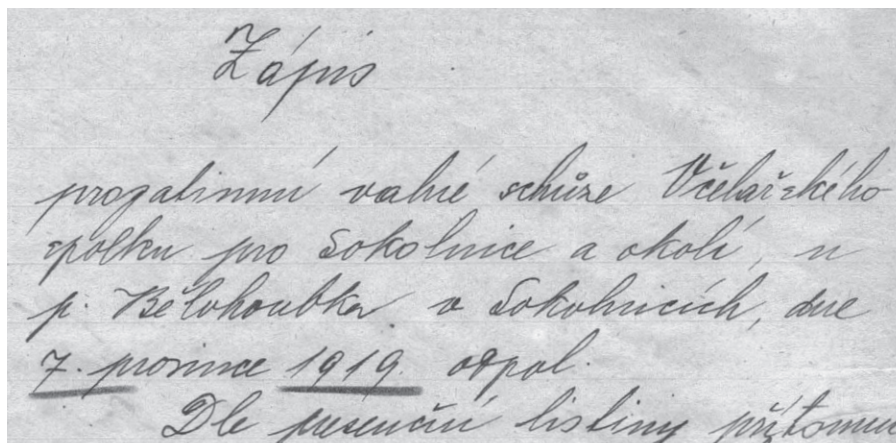 Zápis
prozatimní valné schůze Včelařského
spolku pro Sokolnice a okolí, u
p. Bělohoubka v Sokolnicích, dne
7. prosince 1919 odpol.
Dle presenční listiny přítomno